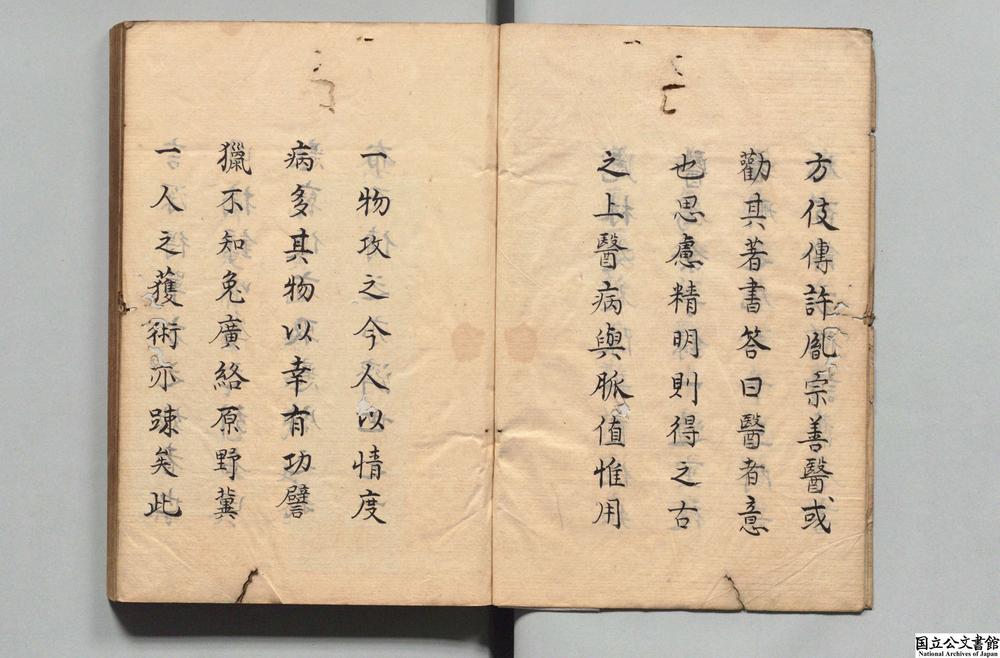 方伎傳許胤宗善醫或
勸其著書答曰醫者意
也思慮精明則得之古
之上醫病與脈值惟用
一物攻之今人以情度
病多其物以幸有功譬
獵不知兔廣絡原野冀
一人之獲術亦踈矣此
国立公文書館
National Archives of Japan